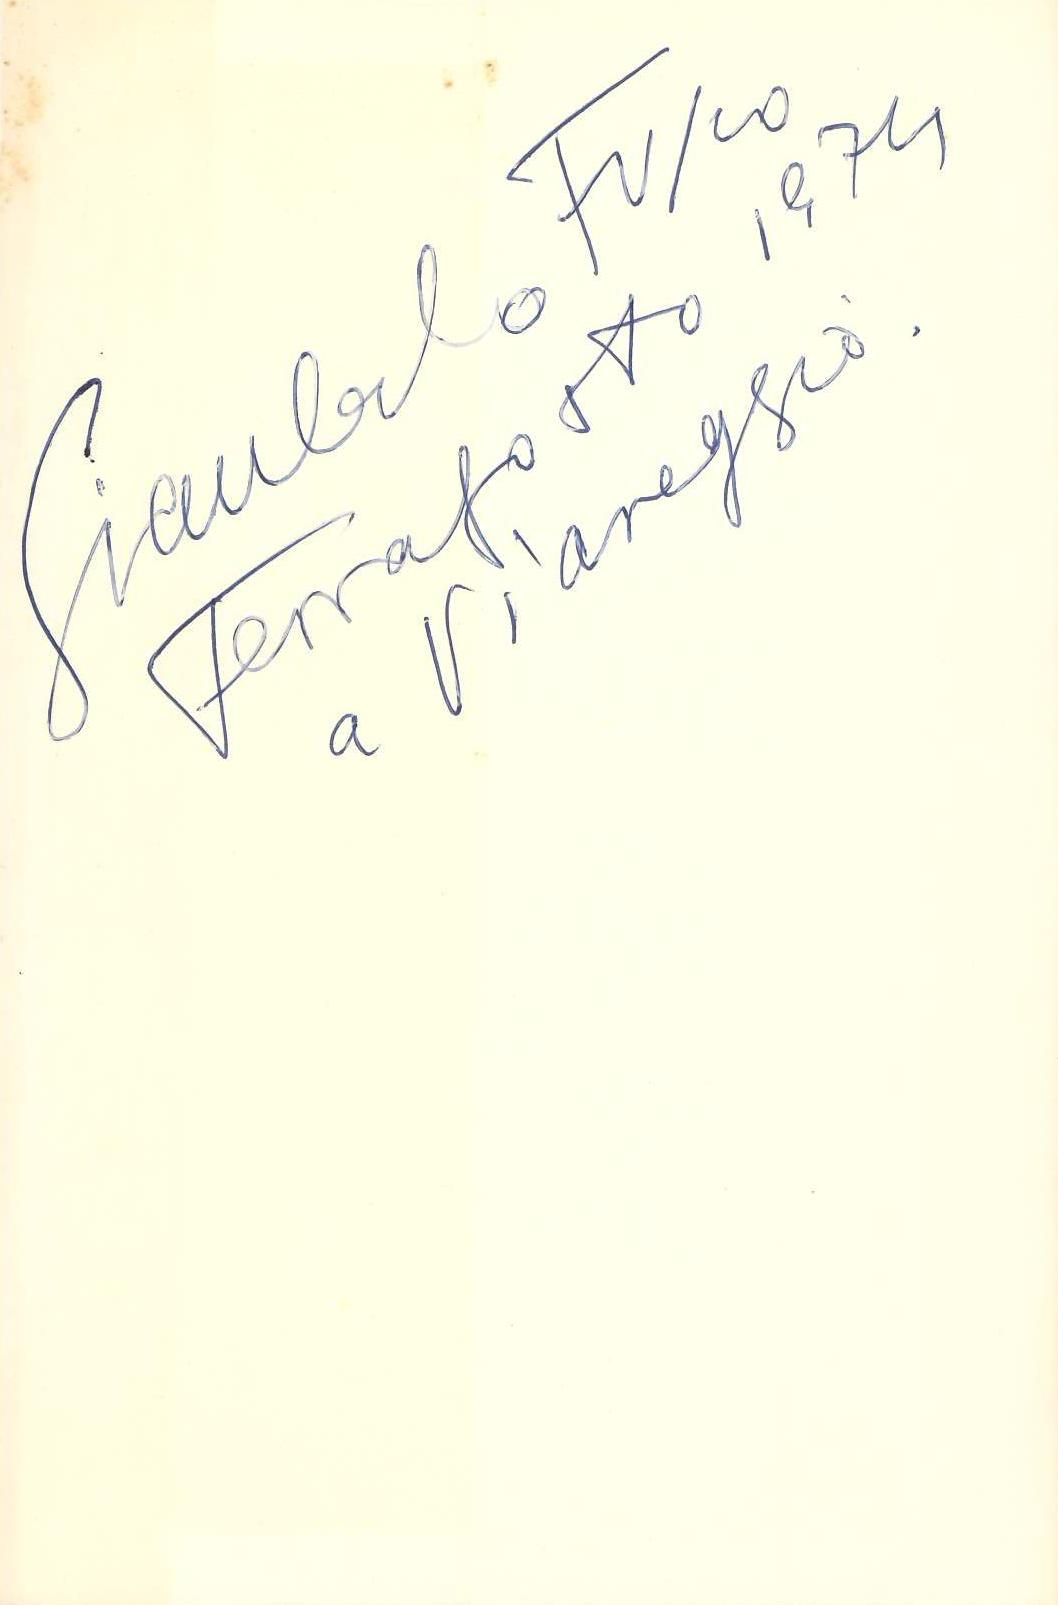 Giancarlo Fusco
Ferragosto 1974
a Viareggio.